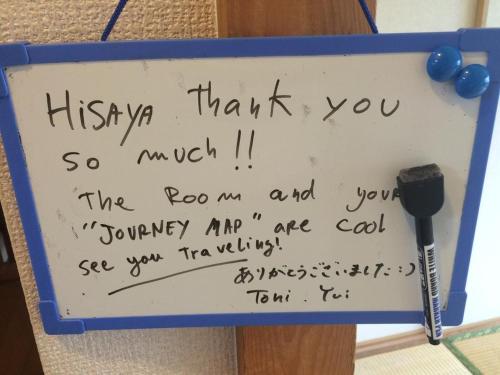 HiSAYA Thank you
so much!!
The Room and your
"JOURNEY MAP" are cool
see you Traveling!
ありがとうございました:)
Toni. Yui
WHITE BOARD MARKER PEN